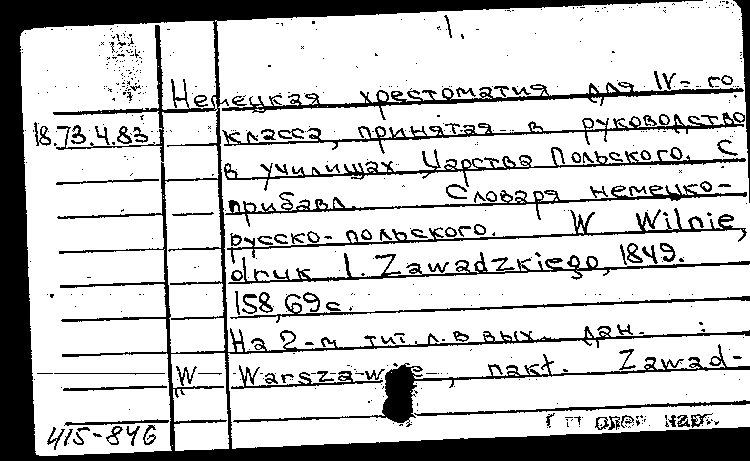 1.
Немецкая хрестоматия для IV-го
18.73.4.83 класса, принятая в руководство
в училищах Царства Польского. С
прибавл. Словаря немецко-
русско-польского. W Wilnie,
druk I. Zawadzkiego, 1849.
158, 69 с.
На 2-м тит. л. в вых. дан. :
W Warszawie, nakł. Zawad-
415-846